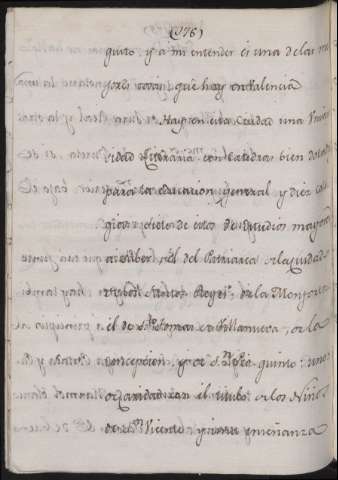 (176)
quito. y a mi entender es una de las me
jores cosas que hay en Valencia
Hay en esta Ciudad una Univer
sidad Literaria con Catedras bien dotadas
para la educacion general y diez cole
gios, y siete de estos de Estudios mayores
a saber, el del Patriarca de la Ciudad
Reyes, de la Monforta
el de Sto. Tomas de Villanueva, de la
concepcion, y de S. Pio quinto: uno
de caridad con el titulo de los Niños
de Sn. Vicente enseñanza